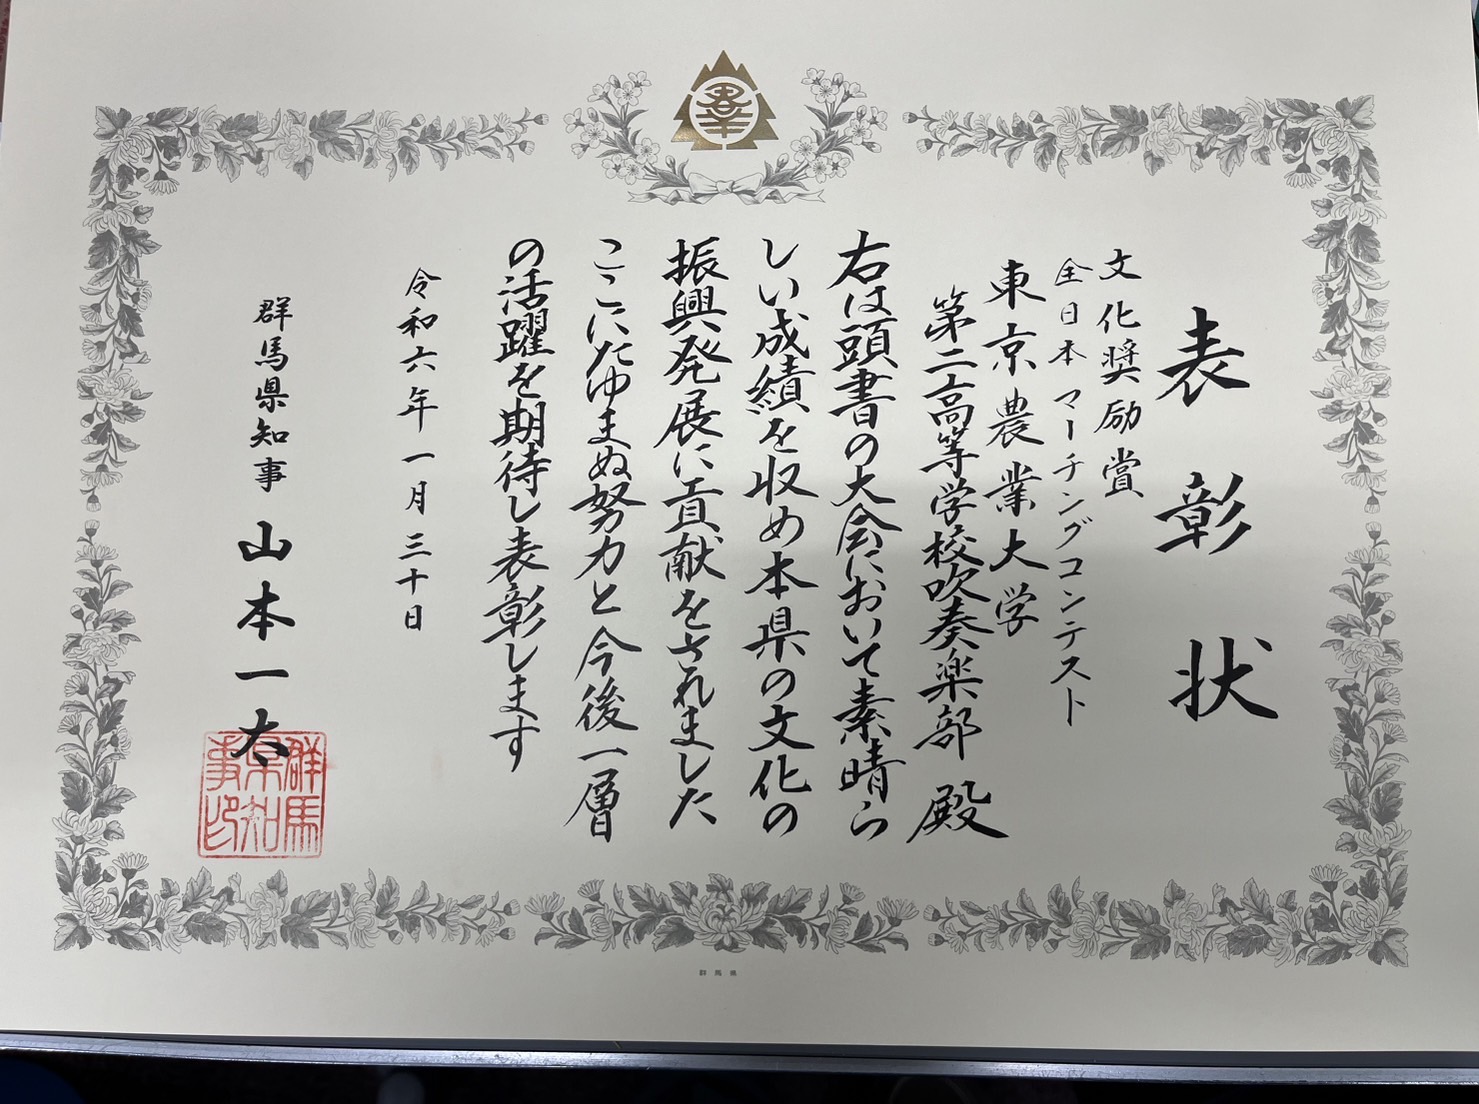 表彰状
文化奨励賞
全日本マーチングコンテスト
東京農業大学
第二高等学校吹奏楽部 殿
右は頭書の大会において素晴ら
しい成績を収め本県の文化の
振興発展に貢献をされました
ここにたゆまぬ努力と今後一層
の活躍を期待し表彰します
令和六年一月三十日
群馬県知事 山本一太
群馬県知事印
群馬県